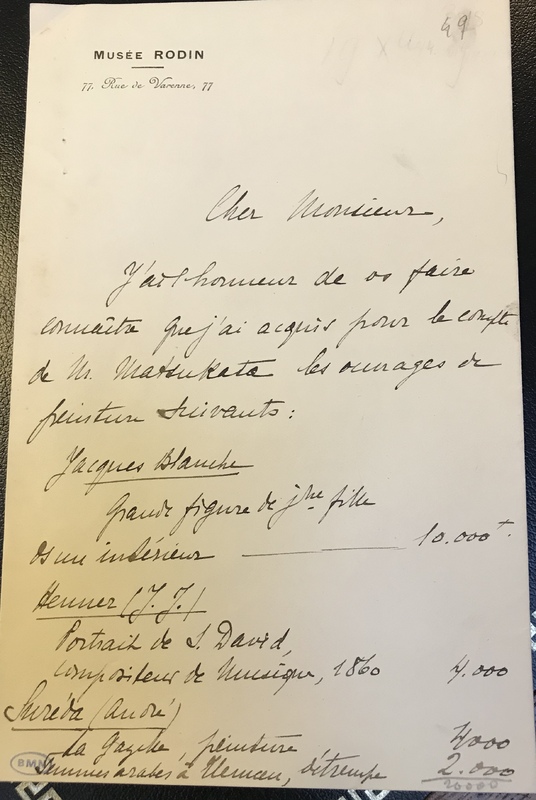 49
MUSÉE RODIN
77, Rue de Varenne, 77
Cher Monsieur,
J'ai l'honneur de vs faire
connaître que j'ai acquis pour le compte
de Mr. Matsukata les ouvrages de
peinture suivants :
Jacques Blanche
Grande figure de jne fille
ds un intérieur 10.000 f.
Henner (J. J.)
Portrait de S. David,
compositeur de musique, 1860 4.000
Suréda (André)
La Gazelle, peinture 4000
Femmes arabes à Tlemcen, détrempe 2.000
20000
BMN